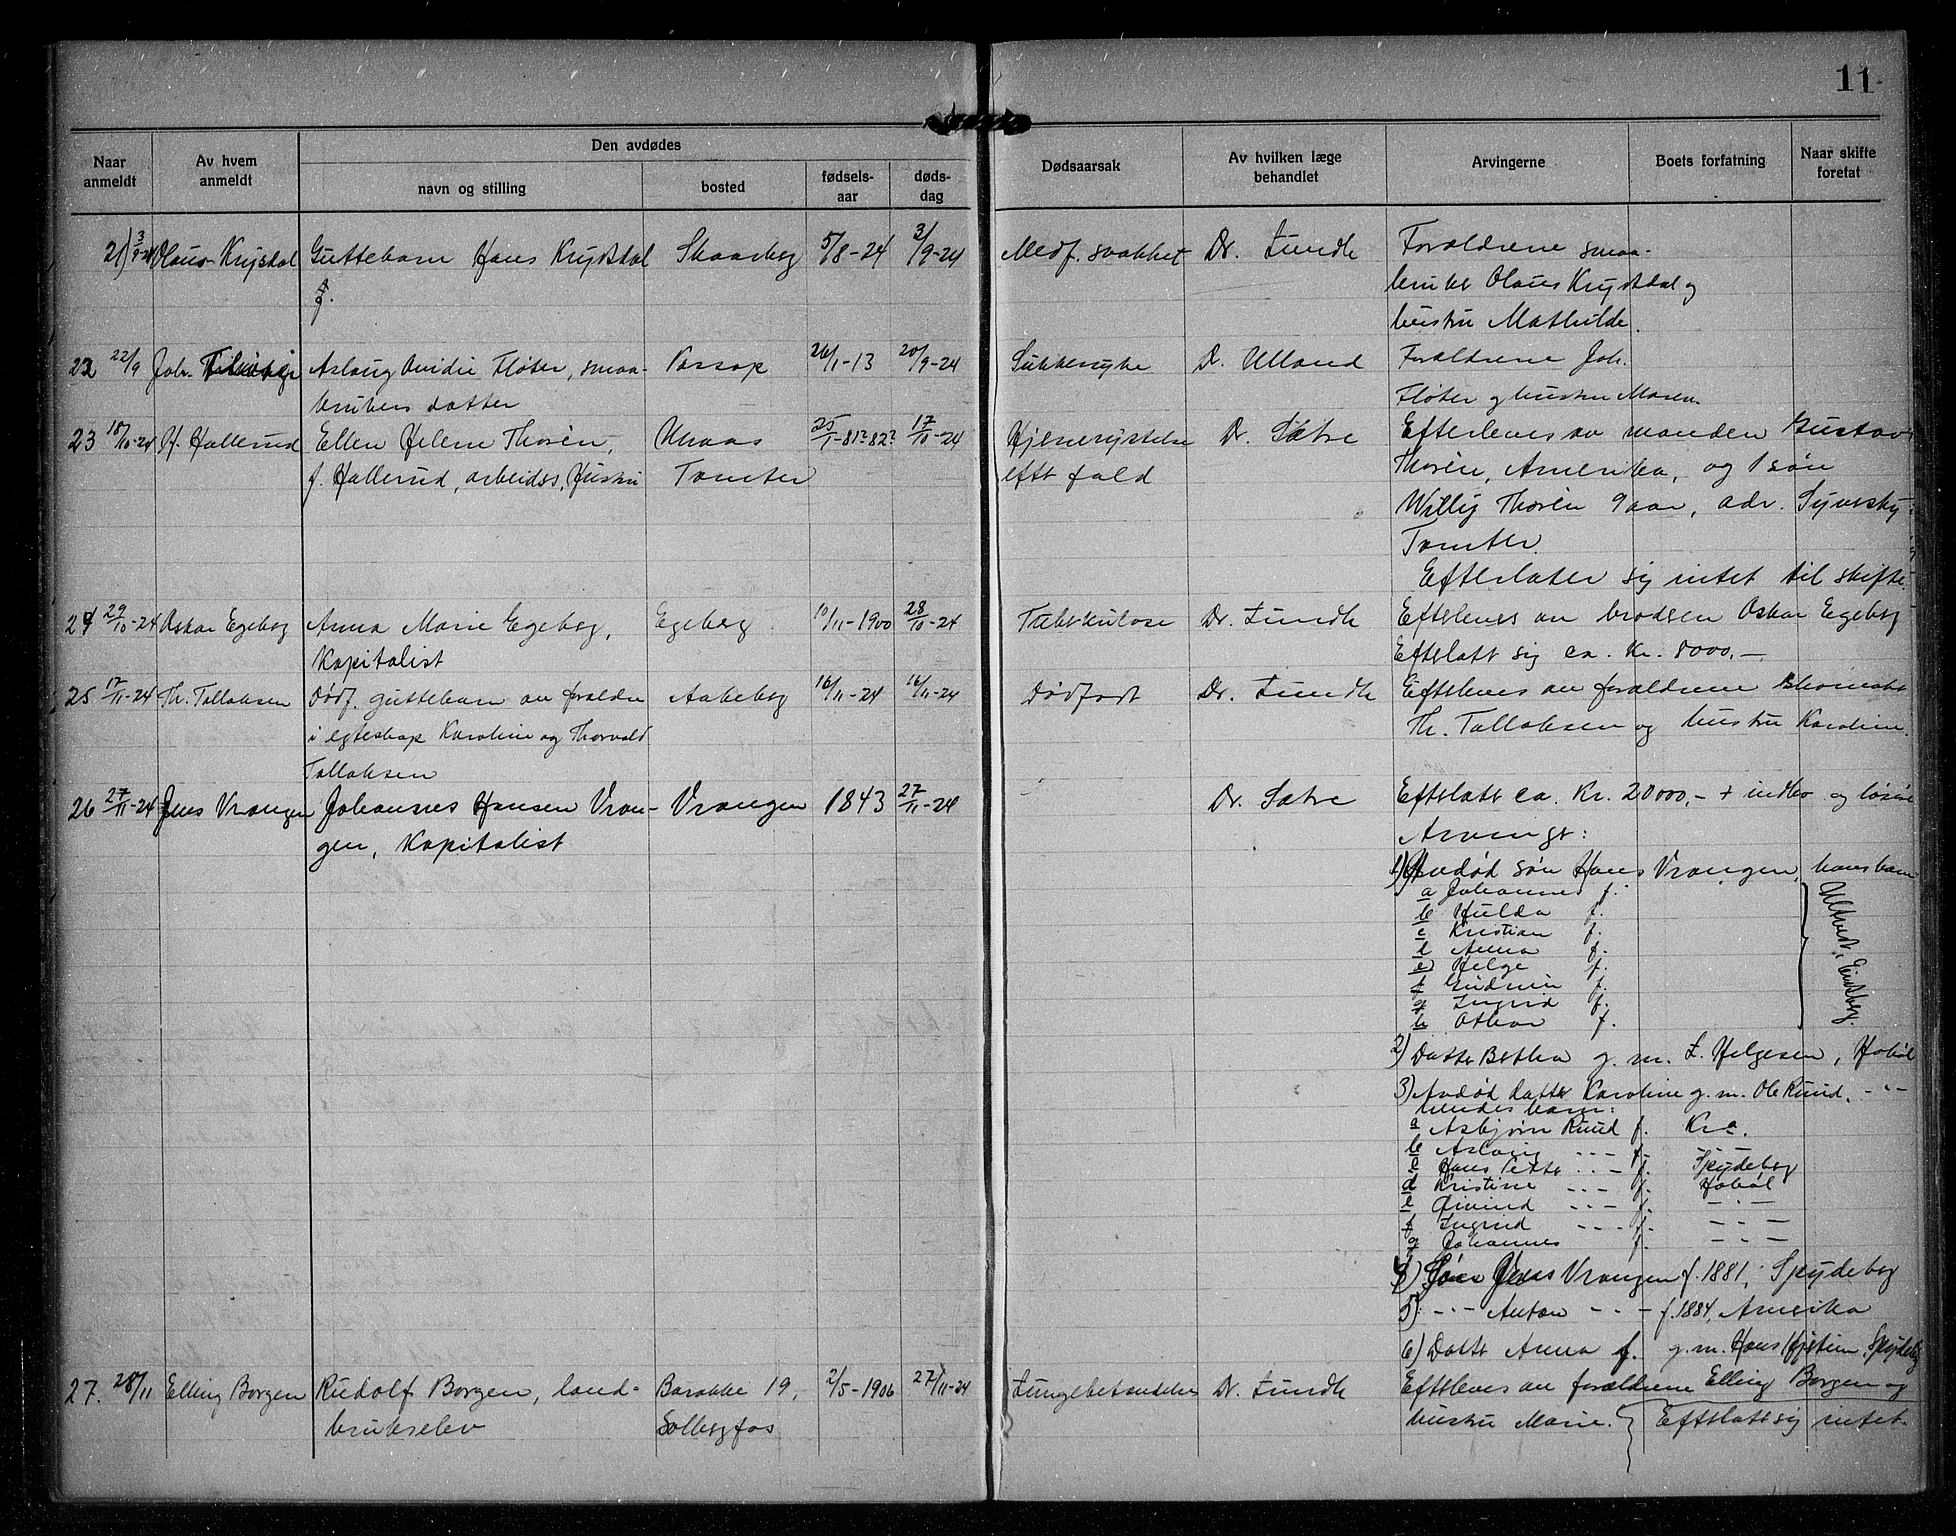 11
Den avdødes
Naar anmeldt
Av hvem anmeldt
navn og stilling
bosted
fødsels-aar
døds-dag
Dødsaarsak
Av hvilken læge behandlet
Arvingerne
Boets forfatning
Naar skifte foretat
21) 3/9-24 Olaus Krysdal Guttebarn Hans Krystdal Skaarberg 5/8-24 3/9-24 Medf. svakhet Dr. Lundh Forældrene smaa-
f. bruker Olaus Krystdal og
hustru Mathilde.
22 22/9 Joh. Aslaug Ovidie Fløter, smaa- 26/1-13 20/9-24 Sukkersyke Dr. Ulland Forældrene Joh.
brukers datter Fløter og hustru Maren.
23 18/10-24 H. Hallerud Ellen Helene Thorén, Knaas 25/1-81?82? 17/10-24 Hjernerystelse Dr. Sætre Efterleves av manden Gustav
f. Hallerud, arbeiders, Hustru Tomter efter fald Thorén, Amerika, og 1 søn
Willy Thorén 9 aar, adr.
Tomter.
Efterlater sig intet til skifte.
24 29/10-24 Oskar Egeberg Anna Marie Egeberg, Egeberg 10/11-1900 28/10-24 Tuberkulose Dr. Lundh Efterleves av broderen Oskar Egeberg
Kapitalist Efterlatt sig ca. Kr. 8000,-
25 17/11-24 Th. Tollaksen Dødf. guttebarn av foreldre Aakeberg 16/11-24 16/11-24 Dødfødt Dr. Lundh Efterleves av forældrene
i egteskap Karoline og Thorvald Th. Tollaksen og hustru Karoline.
Tollaksen
26 27/11-24 Jens Vrangen Johannes Hansen Vran- Vrangen 1843 27/11-24 Dr. Sætre Efterlatt ca. Kr. 20000,- + indbo og løsøre
gen, Kapitalist Arvinger:
1) Avdød søn Hans Vrangen, hans barn
a Johannes f.
b Hulda f.
c Kristian f.
d Anna f.
e Helge f.
f Gudrun f.
g Ingrid f.
h Othar f.
2) Datter Betha g. m. L. Helgesen, Hobøl
3) Avdød datter Karoline g. m. Ole Ruud, -"-
hendes barn:
a Asbjørn Ruud f. Kr.a.
b Aslaug -"- f. -"-
c Hans Petter -"- f. Spydeberg
d Kristine -"- f. Hobøl
e Øivind -"- f. -"-
f Ingrid -"- f. -"-
g Johannes f. -"-
4) Søn Jens Vrangen f. 1881, Spydeberg
5) -"- Anton -"- f. 1884, Amerika
6) Datter Anna f. g. m. Hans Spydeberg
27. 28/11 Elling Borgen Rudolf Borgen, land- Barakke 19, 2/5-1906 27/11-24 Lungebetændelse Dr. Lundh Efterleves av forældrene Elling Borgen og
brukselev Solbergfos hustru Marie. Efterlatt sig intet.